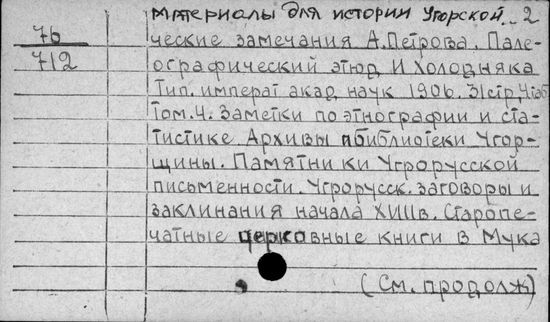 материалы для истории Угорской .. 2
76
712
ческие замечания А.Петрова. Пале-
ографический этюд И Холодняка
Тип. императ акад наук 1906. 31стр, 4таб
Том. 4. Заметки по этнографии и ста-
тистике Архивы и библиотеки Угор-
щины. Памятники Угрорусской
письменности. Угрорусск. заговоры и
заклинания начала XVIIIв. Старопе-
чатные церковные книги в Мука
(См. продолж)